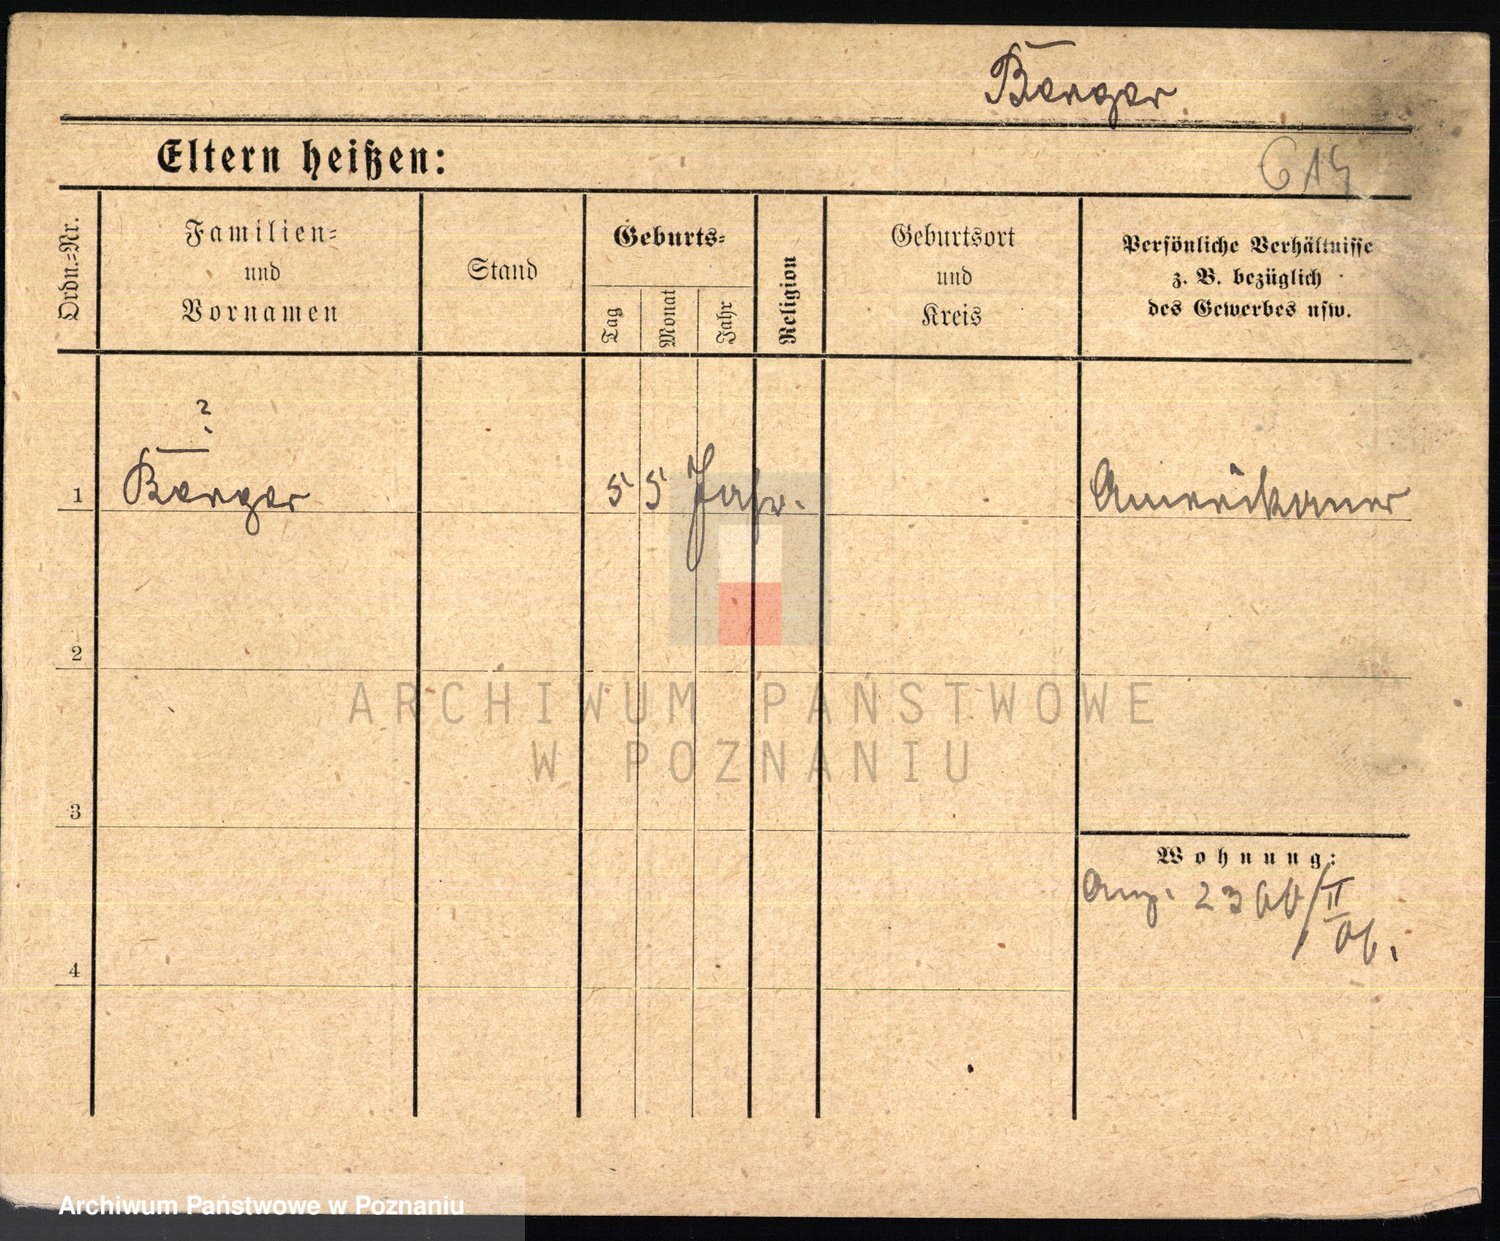 Berger
Eltern heißen:
Ordn.=Nr.
Familien=
und
Vornamen
Stand
Geburts=
Tag
Monat
Jahr
Religion
Geburtsort
und
Kreis
Persönliche Verhältnisse
z. B. bezüglich
des Gewerbes usw.
?
1 Berger 55 Jahr. Amerikaner
2
ARCHIWUM PAŃSTWOWE
W POZNANIU
3
Wohnung:
Anz. 23
4
Archiwum Państwowe w Poznaniu